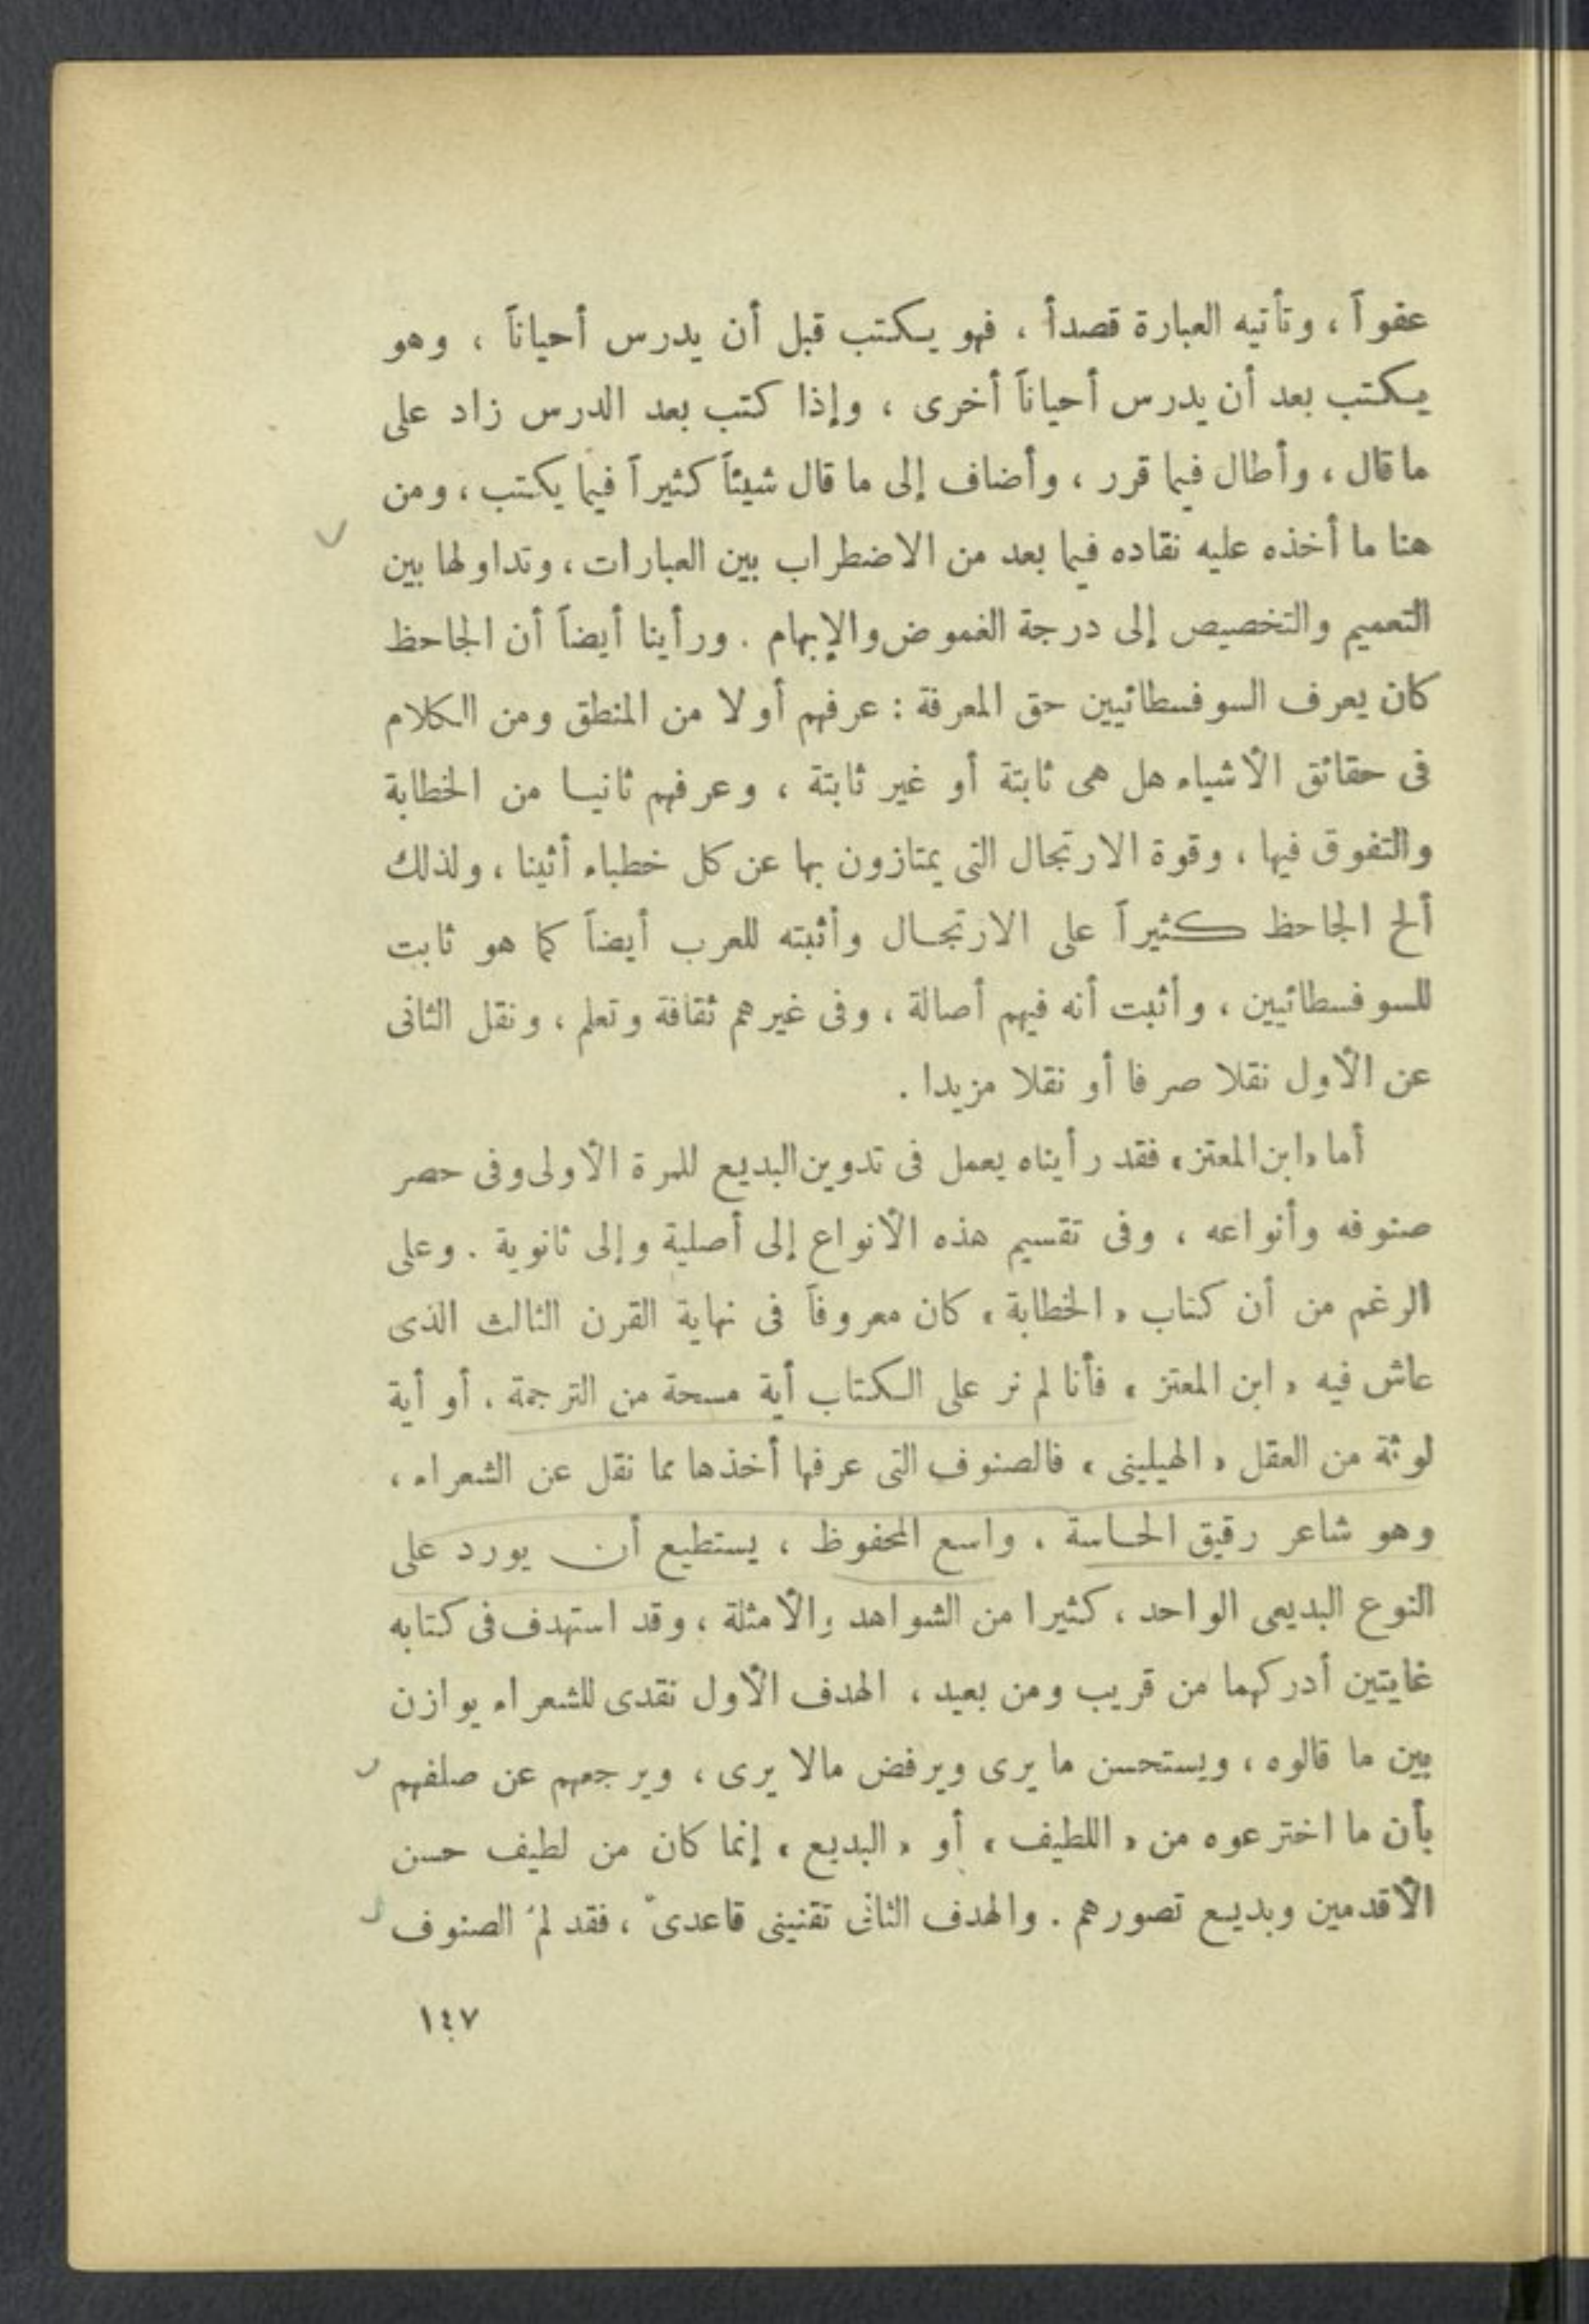 عفواً ، وتأتيه العبارة قصداً ، فهو يكتب قبل أن يدرس أحياناً ، وهو
يكتب بعد أن يدرس أحياناً أخرى ، وإذا كتب بعد الدرس زاد على
ما قال ، وأطال فيما قرر ، وأضاف إلى ما قال شيئاً كثيراً فيما يكتب ، ومن
هنا ما أخذه عليه نقاده فيما بعد من الاضطراب بين العبارات ، وتداولها بين
التعميم والتخصيص إلى درجة الغموض والإبهام . ورأينا أيضاً أن الجاحظ
كان يعرف السوفسطائيين حق المعرفة : عرفهم أولا من المنطق ومن الكلام
فى حقائق الأشياء هل هى ثابتة أو غير ثابتة ، وعرفهم ثانيا من الخطابة
والتفوق فيها ، وقوة الارتجال التى يمتازون بها عن كل خطباء أثينا ، ولذلك
ألح الجاحظ كثيراً على الارتجال وأثبته للعرب أيضاً كما هو ثابت
للسوفسطائيين ، وأثبت أنه فيهم أصالة ، وفى غيرهم ثقافة وتعلم ، ونقل الثانى
عن الأول نقلا صرفا أو نقلا مزيدا .
أما «ابن المعتز» فقد رأيناه يعمل فى تدوين البديع للمرة الأولى وفى حصر
صنوفه وأنواعه ، وفى تقسيم هذه الأنواع إلى أصلية وإلى ثانوية . وعلى
الرغم من أن كتاب « الخطابة » كان معروفاً فى نهاية القرن الثالث الذى
عاش فيه « ابن المعتز » فأنا لم نر على الكتاب أية مسحة من الترجمة ، أو أية
لوثة من العقل « الهيلينى » فالصنوف التى عرفها أخذها مما نقل عن الشعراء ،
وهو شاعر رقيق الحاسة ، واسع المحفوظ ، يستطيع أن يورد على
النوع البديعى الواحد ، كثيرا من الشواهد والأمثلة ، وقد استهدف فى كتابه
غايتين أدركهما من قريب ومن بعيد ، الهدف الأول نقدى للشعراء يوازن
بين ما قالوه ، ويستحسن ما يرى ويرفض مالا يرى ، ويرجعهم عن صلفهم
بأن ما اخترعوه من « اللطيف » أو « البديع » إنما كان من لطيف حسن
الأقدمين وبديع تصورهم . والهدف الثانى تقنينى قاعدىّ ، فقد لمّ الصنوف
١٤٧